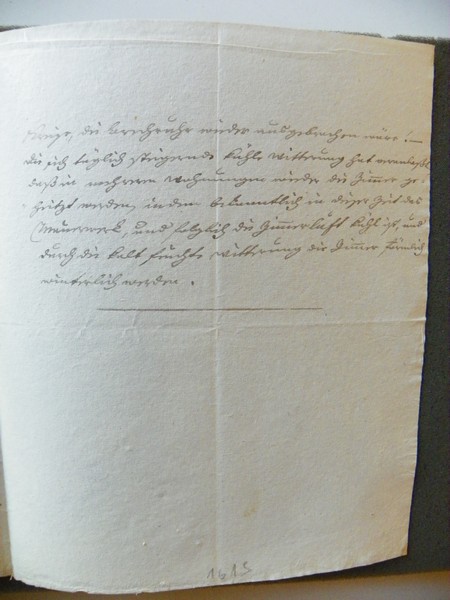 die Brechruhr wieder ausgebrochen wäre;
die sich täglich steigernde kühle Witterung hat veranlaßt
daß in mehreren Wohnungen wieder die Zimmer ge-
heitzt werden, indem bekanntlich in dieser Zeit das
Mauerwerk, und folglich die Zimmerluft kühl ist, und
durch die kalt feuchte Witterung die Zimmer förmlich
winterlich werden.
1613